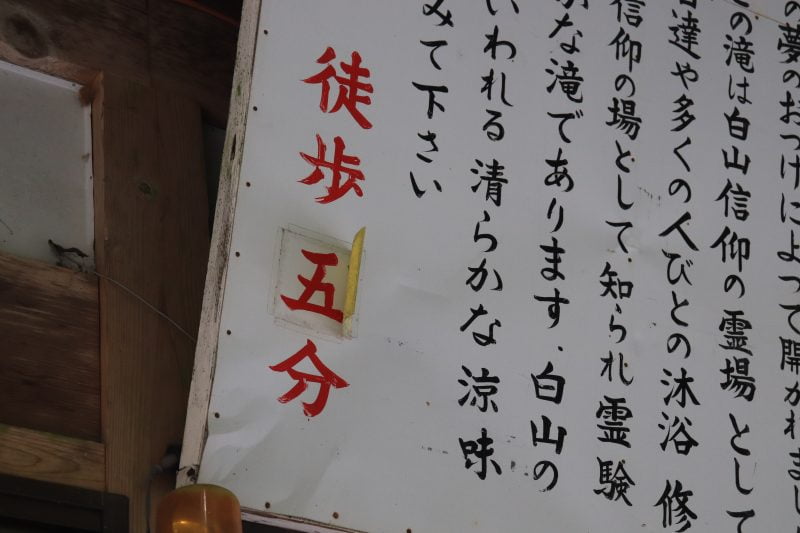 の夢のおつげによって開かれまし
の滝は白山信仰の霊場として
者達や多くの人びとの沐浴修
信仰の場として知られ霊験
な滝であります.白山の
いわれる清らかな涼味
みて下さい
徒歩五分